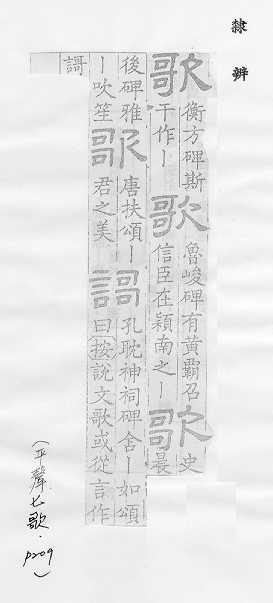 隸辨
歌衡方碑斯干作丨歌魯峻碑有黃霸召信臣在穎南之丨歌史晨
後碑雅丨吹笙歌唐扶頌丨君之美謌孔耽神祠碑舍丨如頌曰按說文歌或從言作
謌
(平聲七歌.p209)